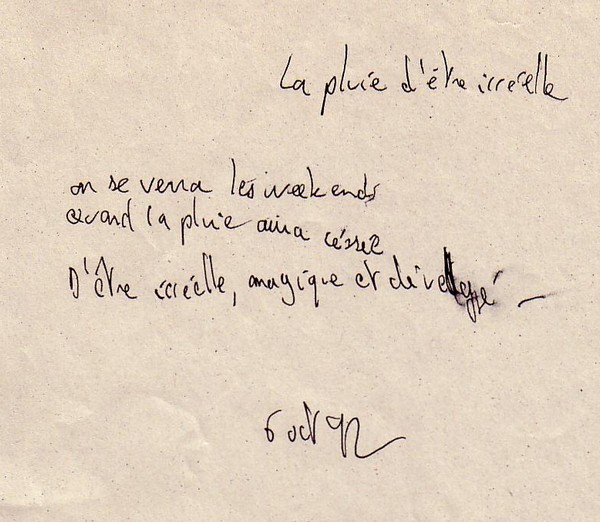 La pluie d'être irréelle
on se verra les week ends
Quand la pluie aura céssée
D'être irréelle, magique et
6 oct 92